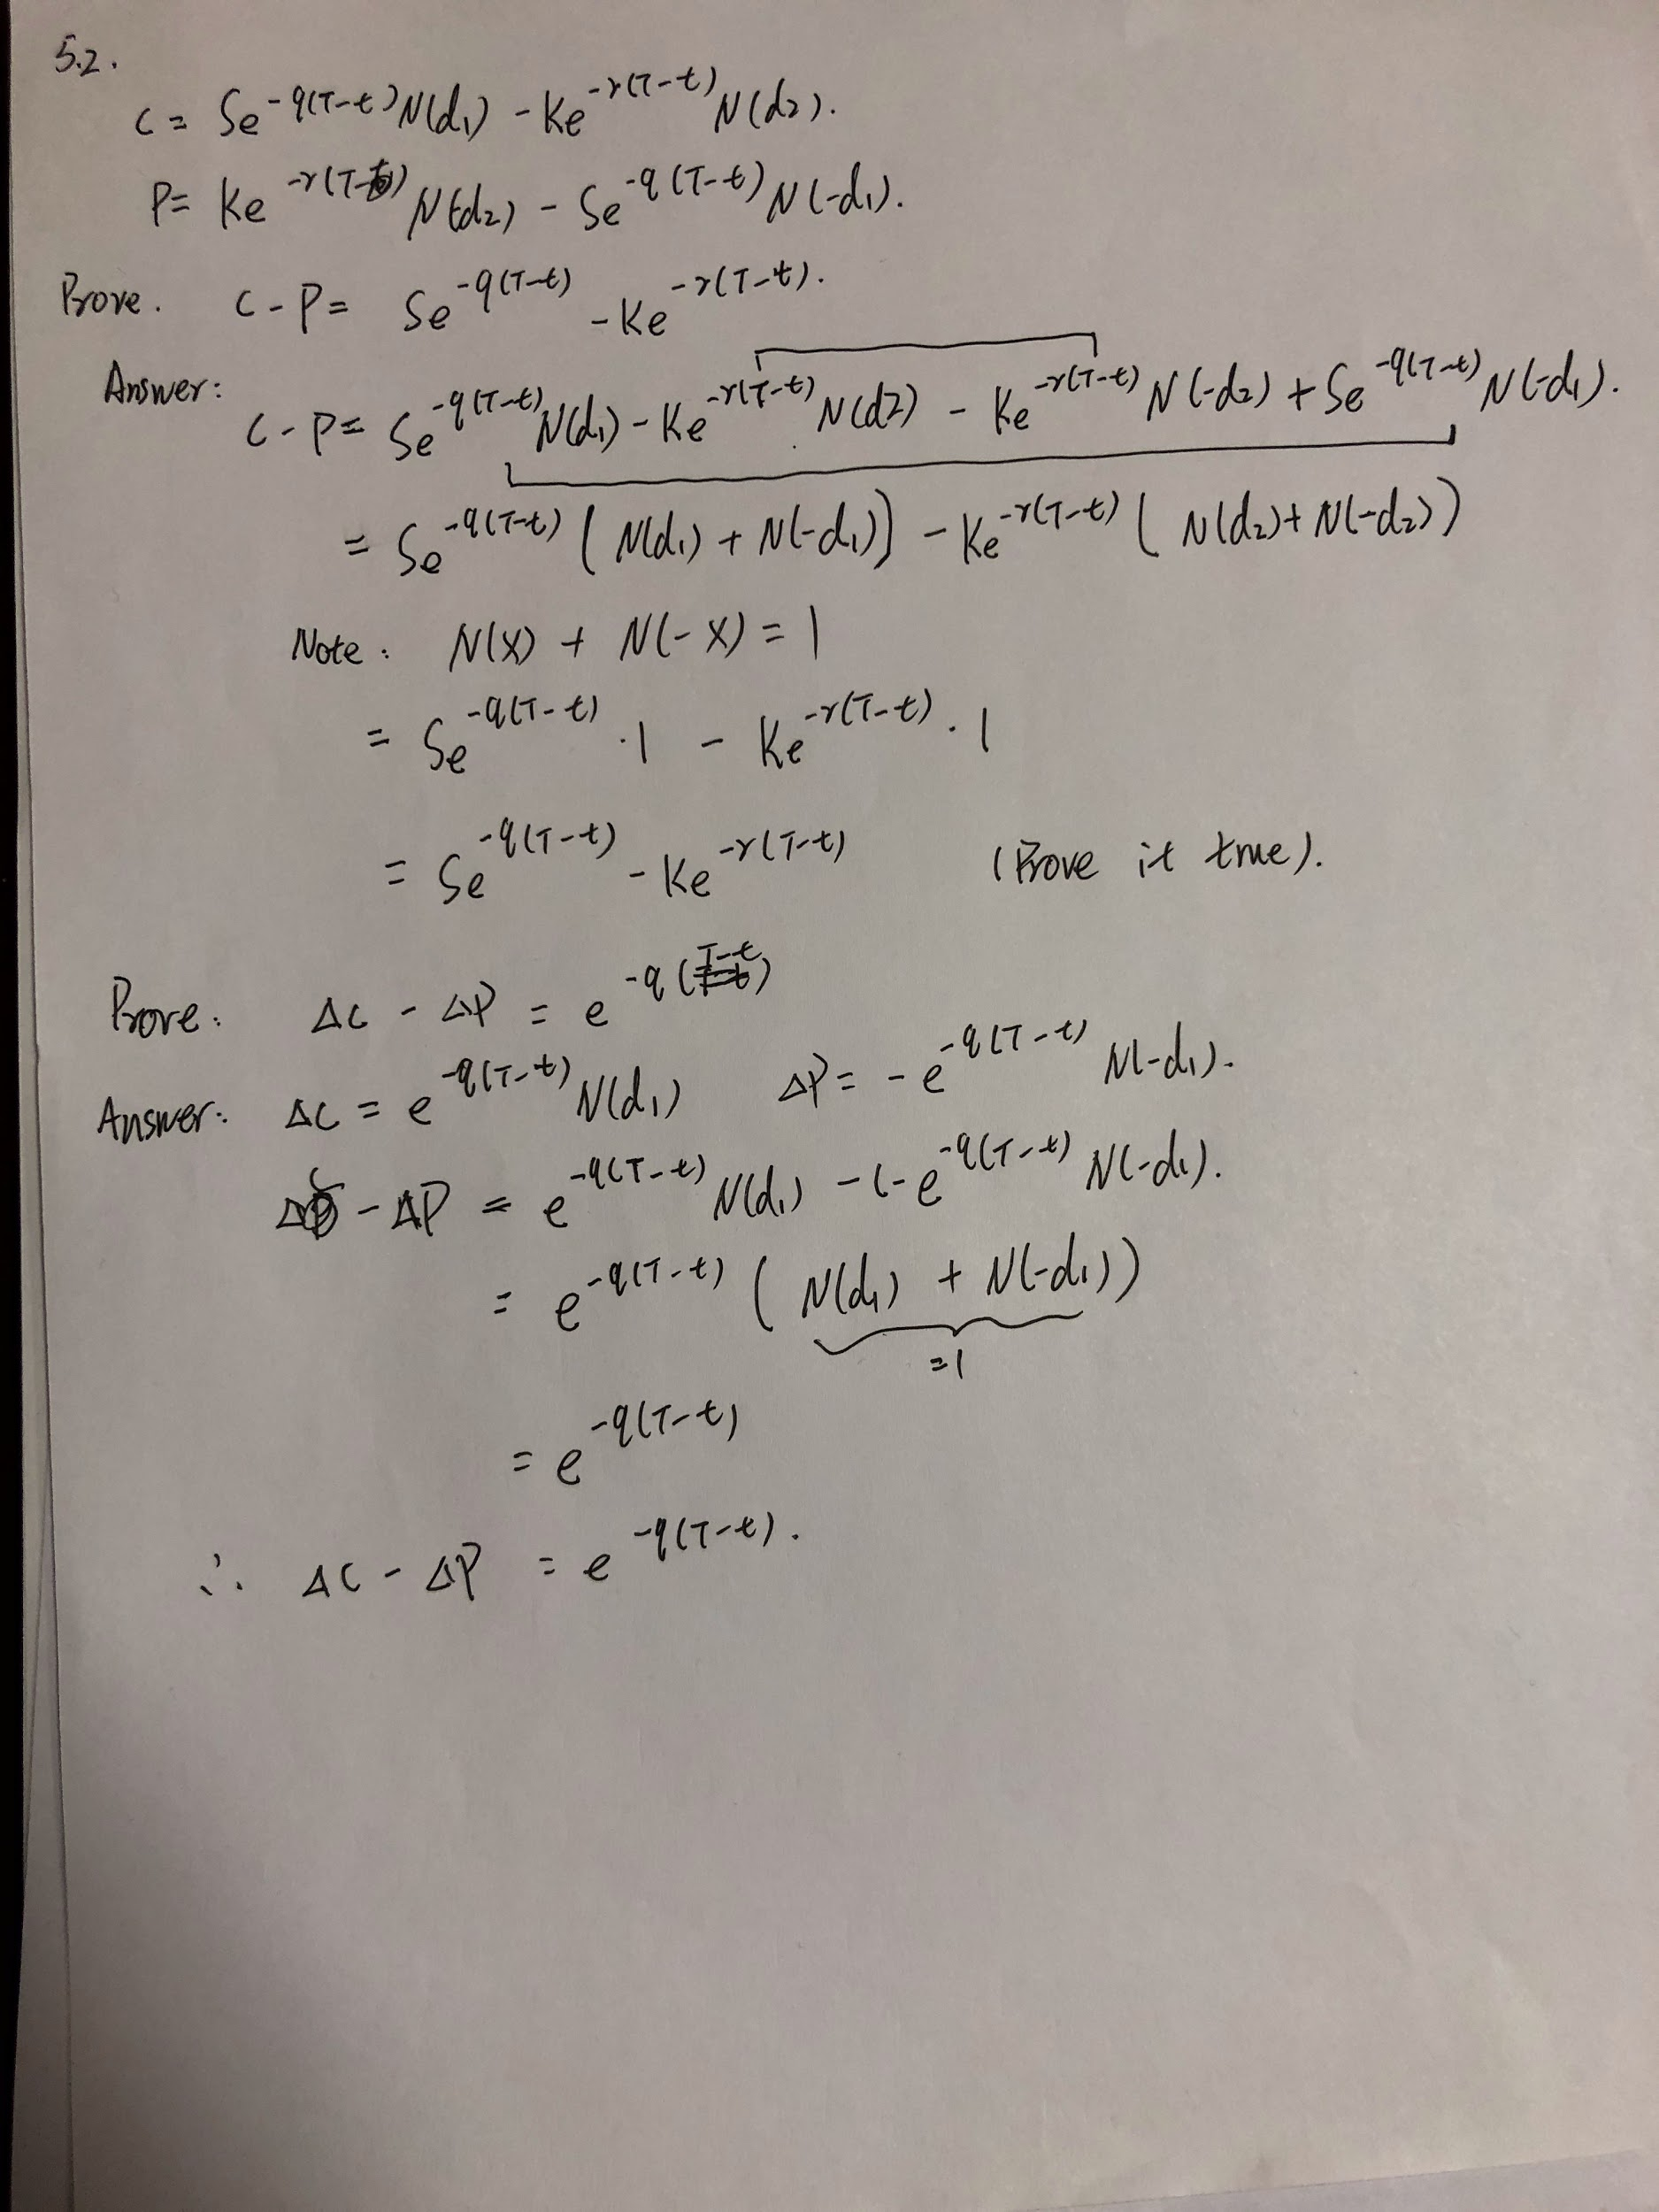 5.2.
C = Se^{-q(T-t)}N(d₁) - Ke^{-r(T-t)}N(d₂).
P = Ke^{-r(T-t)}N(-d₂) - Se^{-q(T-t)}N(-d₁).
Prove. C - P = Se^{-q(T-t)} - Ke^{-r(T-t)}.
Answer: C - P = Se^{-q(T-t)}N(d₁) - Ke^{-r(T-t)}N(d2) - Ke^{-r(T-t)}N(-d₂) + Se^{-q(T-t)}N(-d₁).
= Se^{-q(T-t)} (N(d₁) + N(-d₁)) - Ke^{-r(T-t)} (N(d₂) + N(-d₂))
Note: N(x) + N(-x) = 1
= Se^{-q(T-t)} · 1 - Ke^{-r(T-t)} · 1
= Se^{-q(T-t)} - Ke^{-r(T-t)} (Prove it true).
Prove: ΔC - ΔP = e^{-q(T-t)}
Answer: ΔC = e^{-q(T-t)}N(d₁) ΔP = -e^{-q(T-t)} N(-d₁).
ΔC - ΔP = e^{-q(T-t)}N(d₁) - (-e^{-q(T-t)} N(-d₁).
= e^{-q(T-t)} (N(d₁) + N(-d₁))
=1
= e^{-q(T-t)}
∴ ΔC - ΔP = e^{-q(T-t)}.